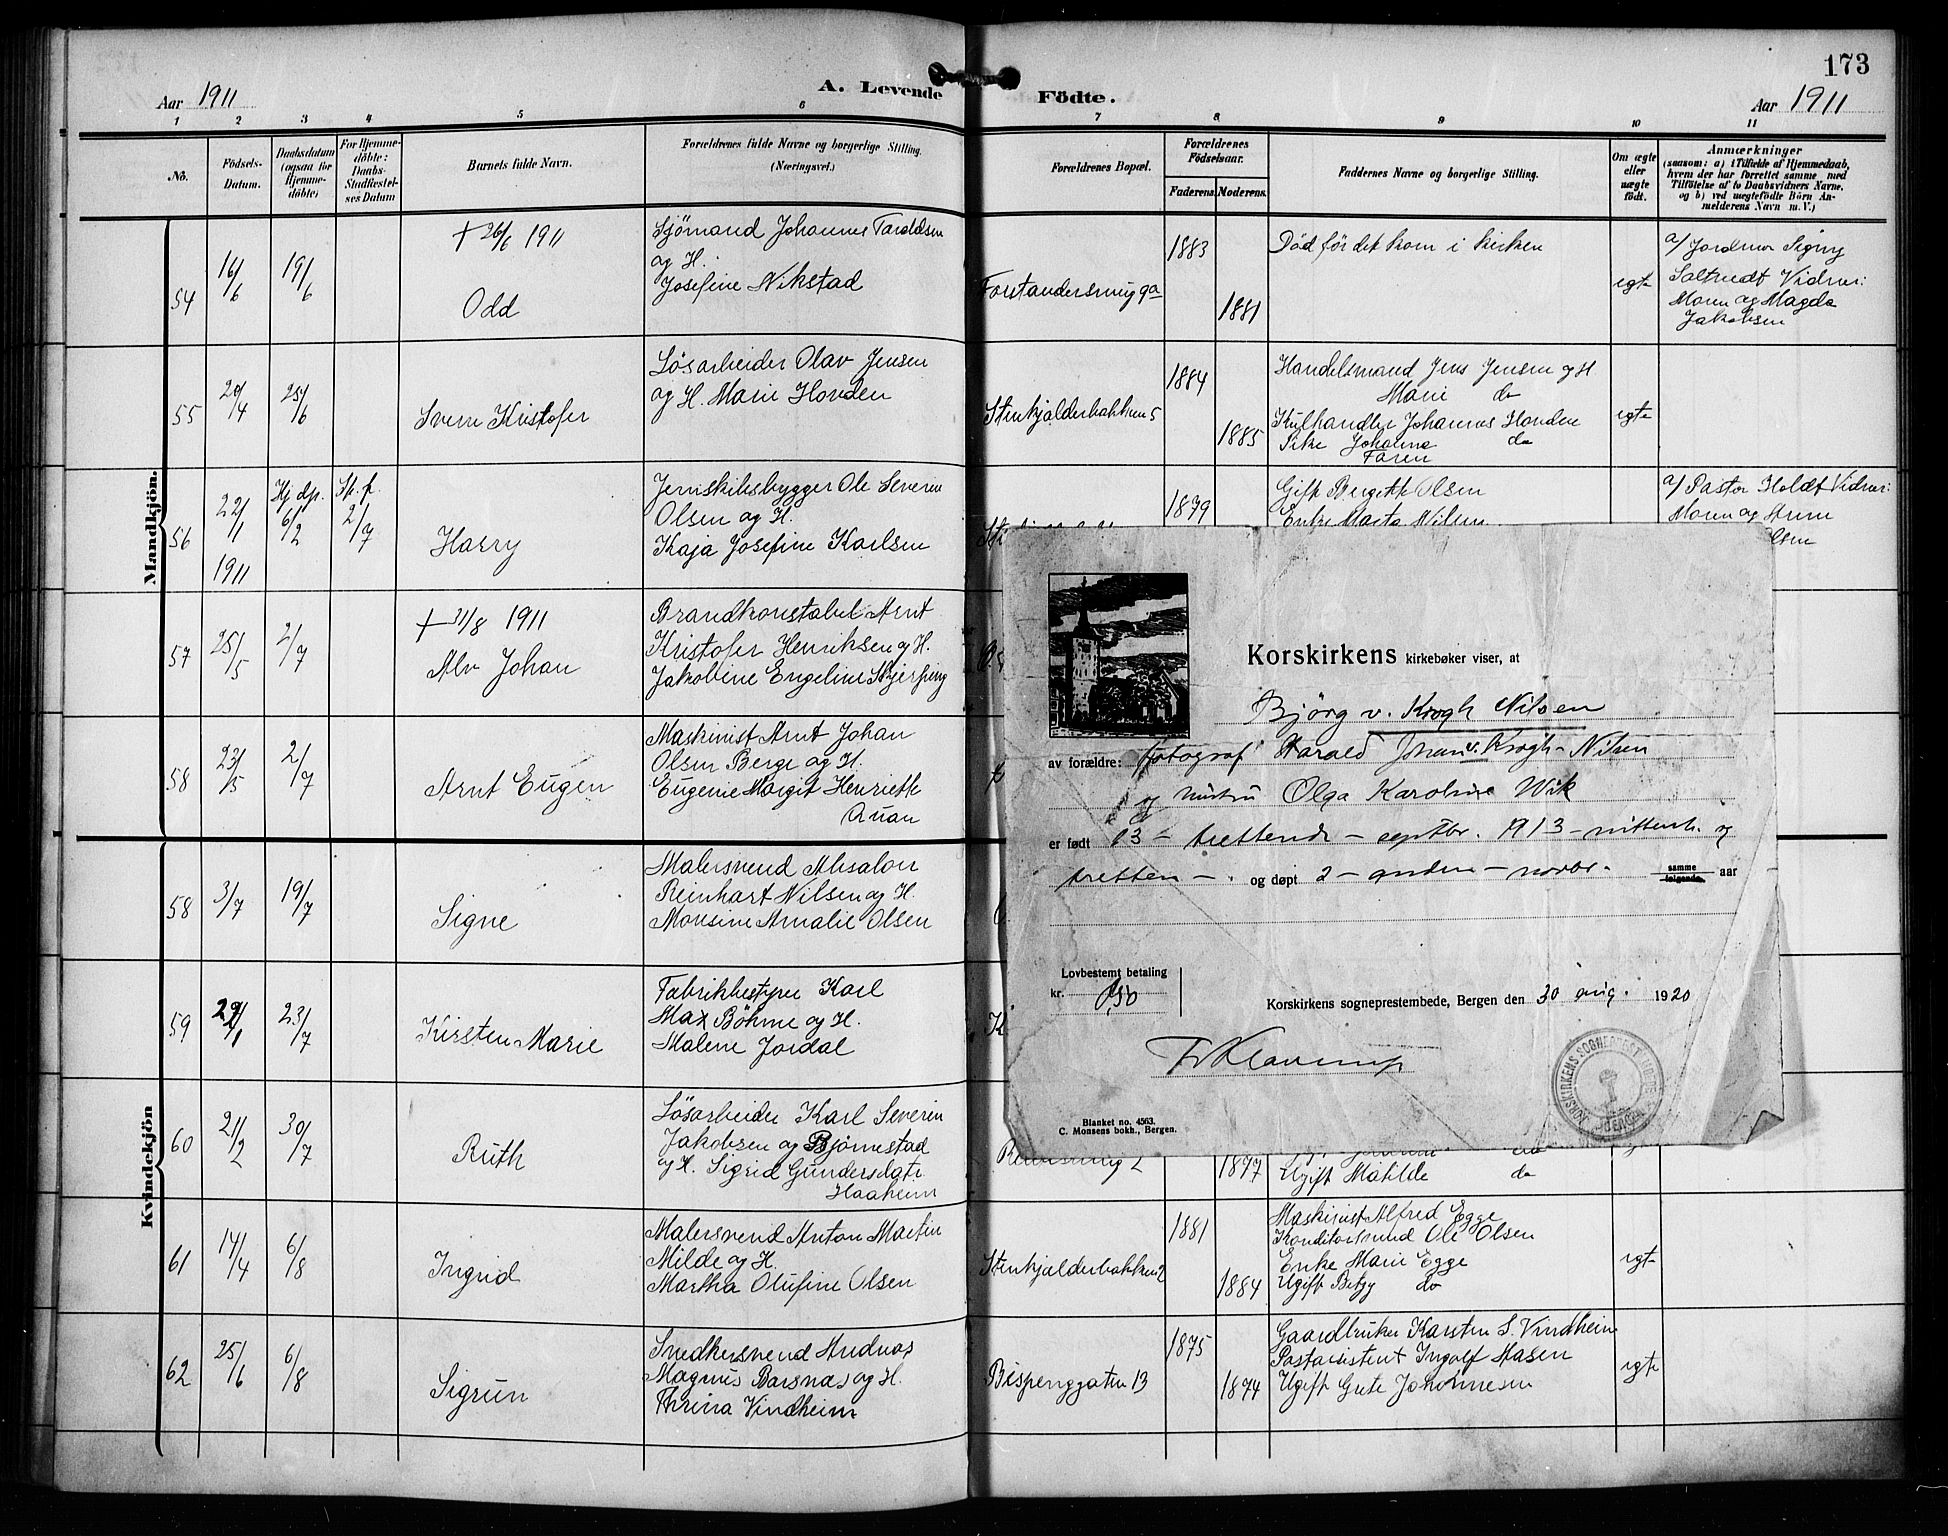 173
Aar 1911
A. Levende
Födte.
Aar 1911
1 2 3 4 5 6 7 8 9 10 11
No.
Födsels-
Datum.
Daabsdatum
(ogsaa for
Hjemme-
döbte)
For Hjemme-
döbte:
Daabs-
Stadfæstel-
ses Datum
Barnets fulde Navn.
Forældrenes fulde Navne og borgerlige Stilling.
(Næringsvei.)
Forældrenes Bopæl.
Forældrenes
Födselsaar.
Faderens. Moderens.
Faddernes Navne og borgerlige Stilling.
Om ægte
eller
uægte
födt.
Anmærkninger
(saasom: a) i Tilfælde af Hjemmedaab,
hvem der har forrettet samme med
Tilföielse af to Daabsvidners Navne,
og b) ved uægtefödte Börn An-
melderens Navn m. V.)
Mandkjön.
54
16/6
19/6
+ 26/6 1911
Odd
Sjömand Johannes Taraldsen
og H.
Josefine Nikstad
Forstandersmug 9a
1883
1881
Död för det kom i kirken
egte
a/ Jordmor Signy
Saltvedt Vidner:
Moren og Magda
Jakobsen
55
29/4
25/6
Sverre Kristofer
Lösarbeider Olav Jensen
og H. Marie Hovden
Stenkjelderbakken 5
1884
1885
Handelsmand Jens Jensen og H
Marie do
Kulhandler Johannes Hovden
Pike Johanna do
Faren
egte
56
22/1
1911
Hj dp.
6/2
St. f.
2/7
Harry
Jernskibsbygger Ole Severin
Olsen og H.
Kaja Josefine Karlsen
1879
Gift Bergitte Olsen
Enke Marta Nilsen
a/ Pastor Holdt Vidner:
Moren og Anne
Olsen
57
25/5
2/7
+ 31/8 1911
Alv Johan
Brandkonstabel Arnt
Kristofer Henriksen og H.
Jakobine Engeline Skjerping
58
23/5
2/7
Arnt Eugen
Maskinist Arnt Johan
Olsen Berge og H.
Eugenie Margit Henriette
Quan
Kvindekjön
58
3/7
19/7
Signe
Malersvend Absalon
Reinhart Nilsen og H.
Monsine Amalie Olsen
59
23/7
Kirsten Marie
Fabrikbestyrer Karl
Max Böhme og H.
Malene Jordal
60
21/2
30/7
Ruth
Lösarbeider Karl Severin
Jakobsen og Bjørnestad
og H. Sigrid Gundersdatr
Haaheim
1877
Ugift Matilde do
61
14/4
6/8
Ingrid
Malersvend Anton Martin
Milde og H.
Martha Olufine Olsen
Stenkjelderbakken 2
1881
1884
Maskinist Alfred Egge
Konditorsvend Ole Olsen
Enke Marie Egge
Ugift Betzy do
egte
62
25/6
6/8
Sigrun
Snedkersvend Andreas
Magnus Barsnes og H.
Thrina Vindheim
Bispenggaten 13
1875
1874
Gaardbruker Karsten S. Vindheim
Postassistent Ingolf Aasen
Ugift Grete Johannesen
egte
Korskirkens kirkebøker viser, at
Bjørg v. Krogh Nilsen
av forældre: fotograf Harald Johan v. Krogh-Nilsen
og hustru Olga Karoline Wik
er født 13 - trettende - septbr. 1913 - nittenh. og
tretten - . og døpt 2 - anden - novbr. samme følgende aar
Lovbestemt betaling
kr. 0,50
Korskirkens sogneprestembede, Bergen den 30 aug. 1920
Blanket no. 4563.
C. Monsens bokh., Bergen.
KORSKIRKENS SOGNEPRESTEMBEDE BERGEN